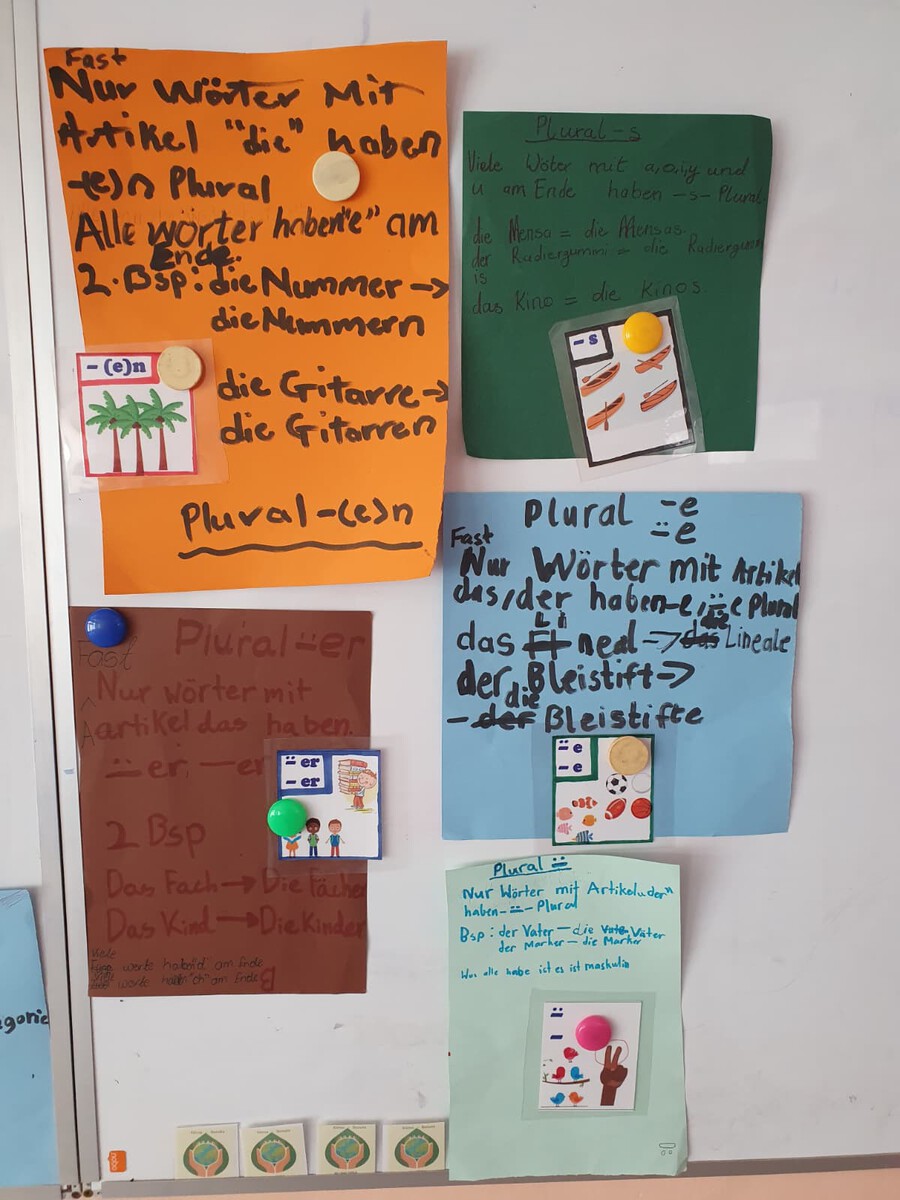 Fast
Nur Wörter Mit
Artikel "die" haben
-(e)n Plural
Alle wörter haben "e" am
Ende.
2. Bsp: die Nummer ->
die Nummern
die Gitarre ->
die Gitarren
Plural -(e)n
- (e)n
Plural -s
Viele Wöter mit a,o,i,y und
u am Ende haben -s- Plural
die Mensa = die Mensas
der Radiergummi = die Radiergumm
is
das Kino = die Kinos.
- s
Plural -e
⸚e
Fast
Nur Wörter mit Artikel
das, der haben -e, ⸚e Plural
das Lineal -> die Lineale
der Bleistift ->
- die Bleistifte
⸚ e
- e
Plural ⸚er
Fast
Nur wörter mit
Aartikel das haben
⸚er, -er
2 Bsp
Das Fach -> Die Fächer
Das Kind -> Die Kinder
Viele
worte haben "d" am Ende
worte haben "ch" am Ende
⸚ er
- er
Plural ⸚
Nur Wörter mit Artikel „der"
haben - ⸚ - Plural
Bsp: der Vater - die Väter
der Marker - die Marker
Was alle habe ist es ist maskulin
⸚
-
egorie
nobo